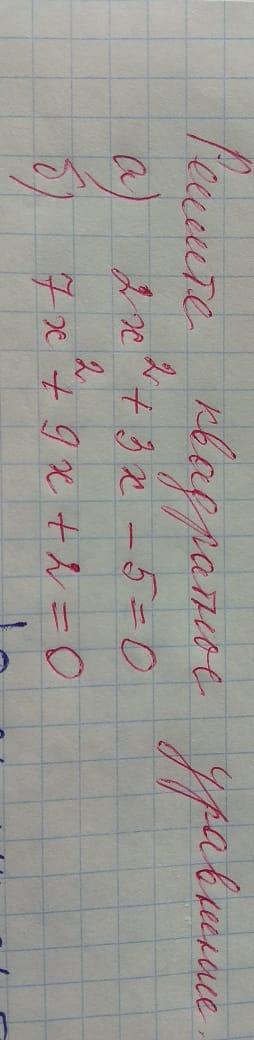 Решите квадратное уравнение.
а) 2x² + 3x - 5 = 0
б) 7x² + 9x + 2 = 0